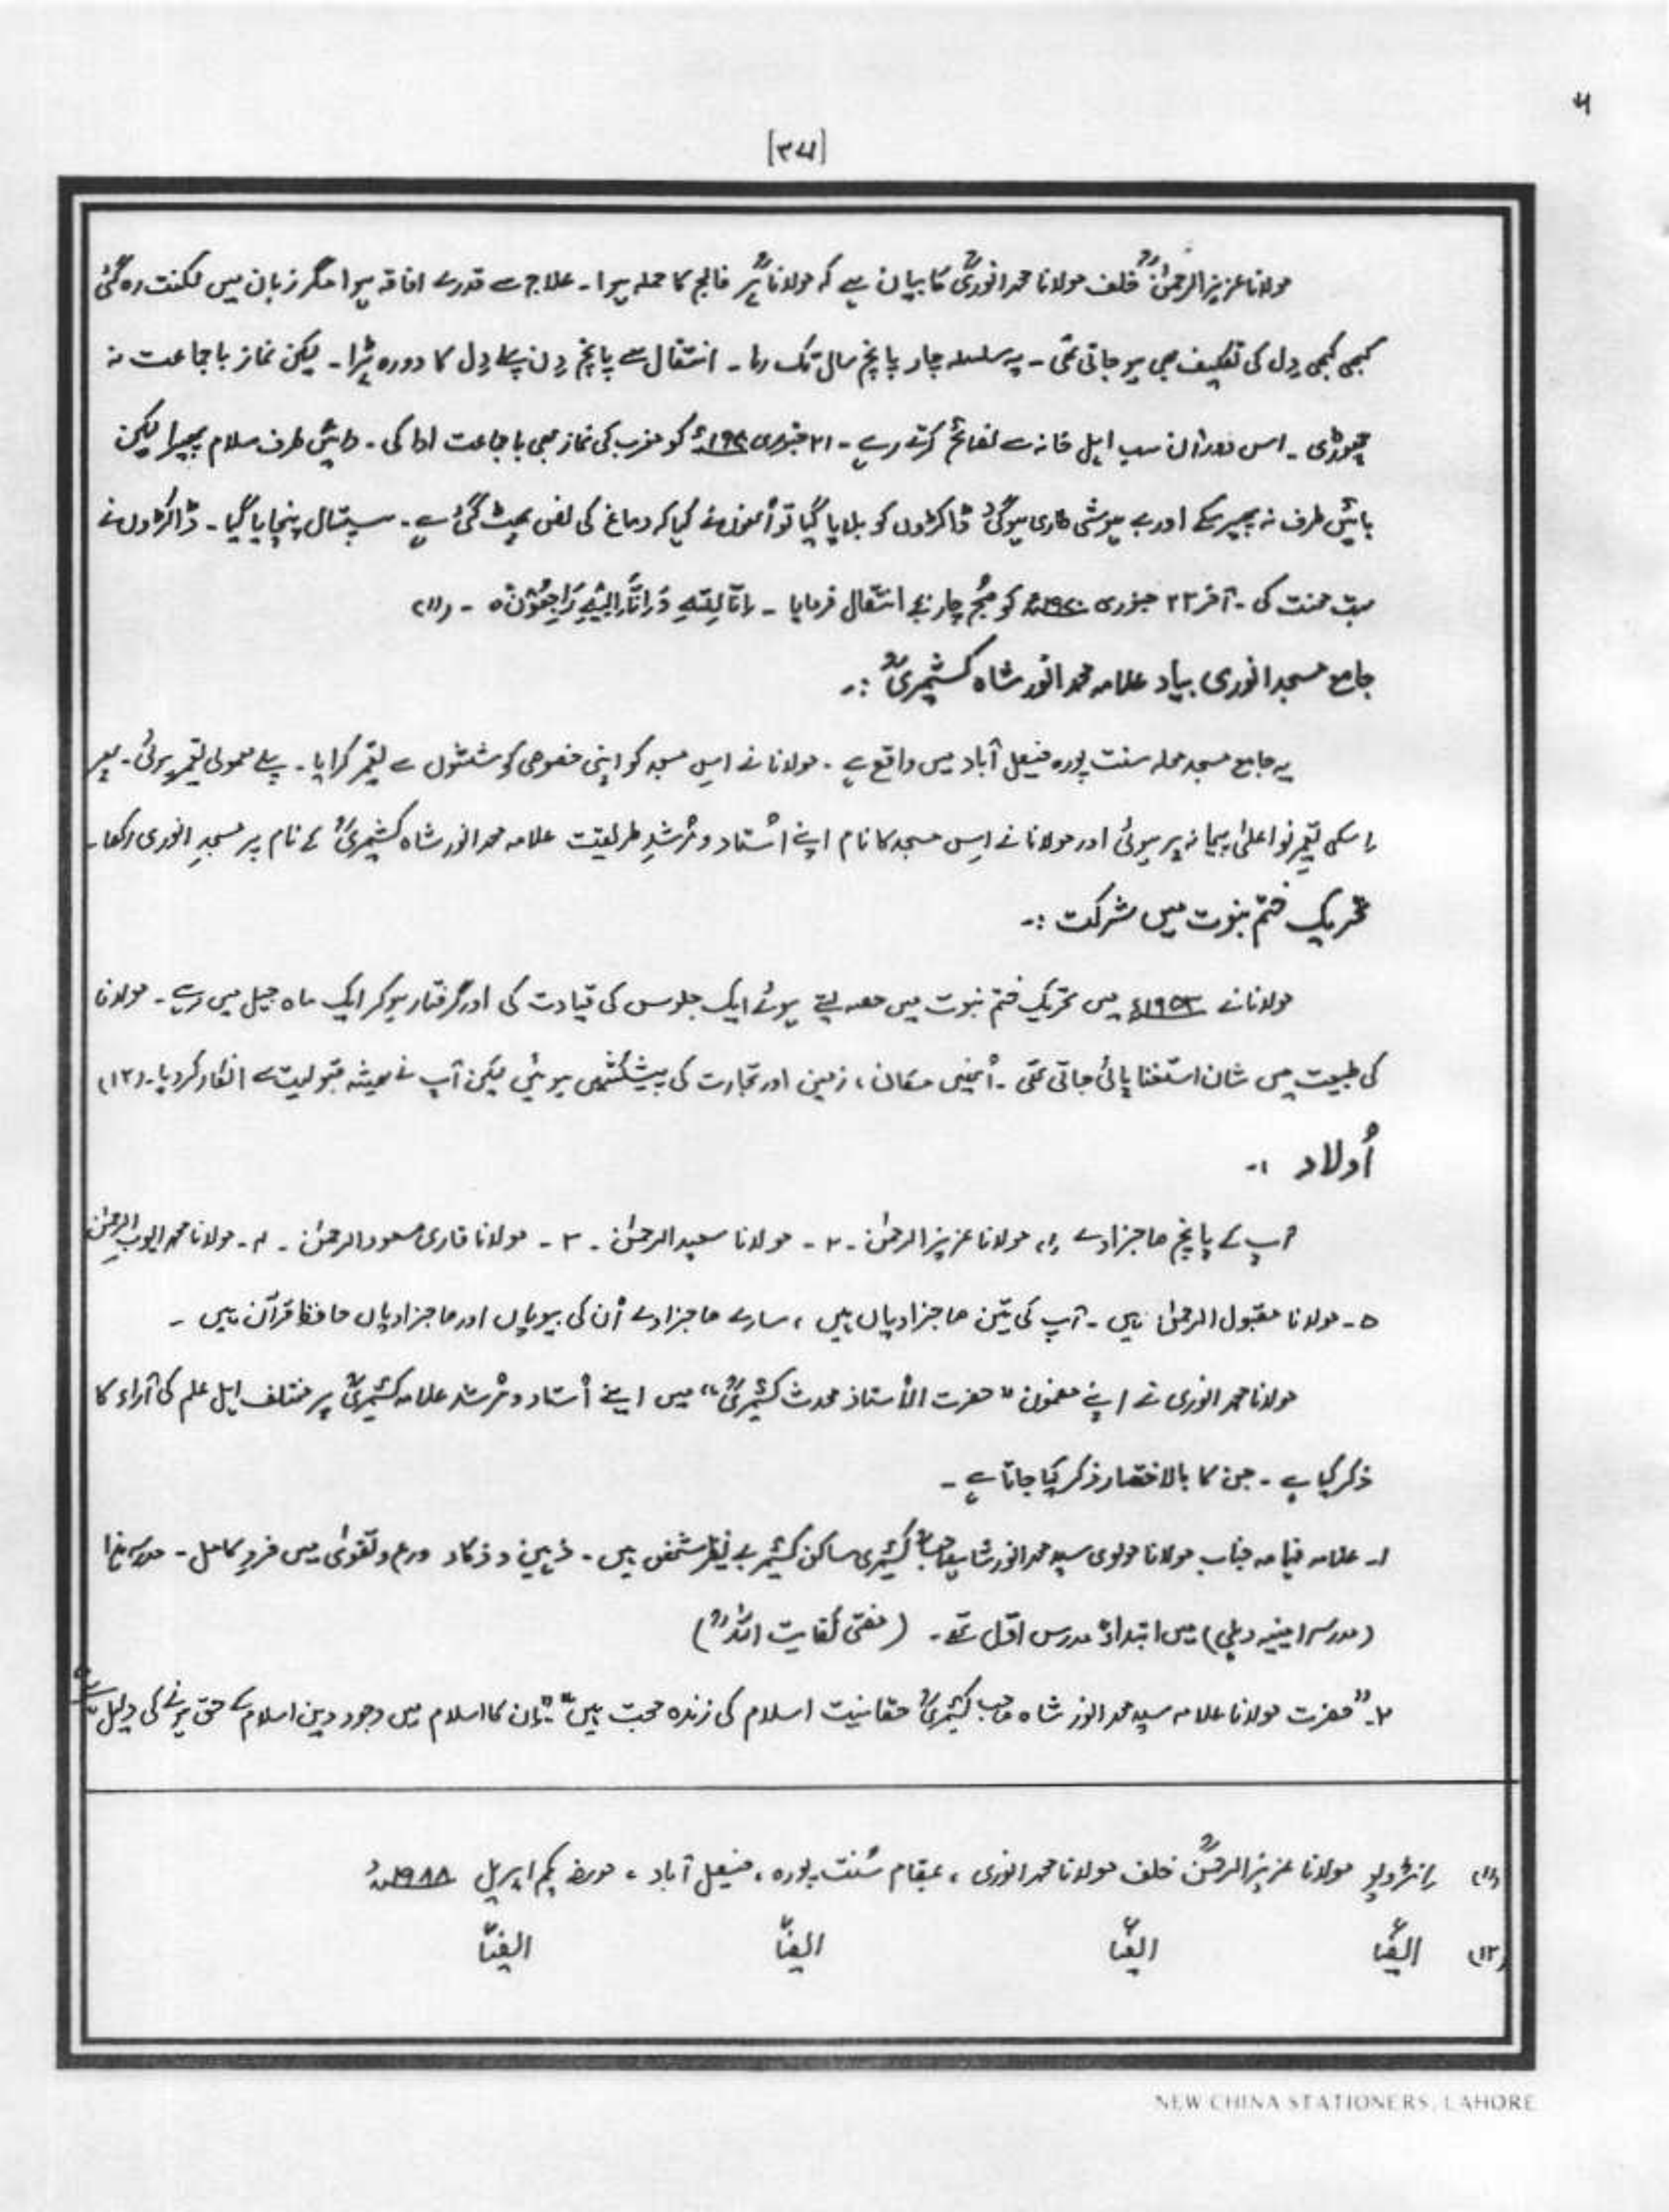 [۳۷۱]
مولانا عزیز الرحمٰنؒ خلف مولانا محمد انوریؒ کا بیان ہے کہ مولاناؒ پر فالج کا حملہ ہوا۔ علاج سے قدرے افاقہ ہوا مگر زبان میں لکنت رہ گئی
کبھی کبھی دِل کی تکلیف بھی ہو جاتی تھی۔ یہ سلسلہ چار پانچ سال تک رہا۔ انتقال سے پانچ دِن پہلے دِل کا دورہ پڑا۔ لیکن نماز باجماعت نہ
چھوڑی۔ اس دوران سب اہل خانہ سے نصائح کرتے رہے۔ ۲۱ جنوری ۱۹۷۰ء کو مغرب کی نماز بھی باجماعت ادا کی۔ دائیں طرف سلام پھیرا لیکن
بائیں طرف نہ پھیر سکے اور بے ہوشی طاری ہوگئی ڈاکٹروں کو بلایا گیا تو اُنھوں نے کہا کہ دماغ کی نض پھٹ گئی ہے۔ ہسپتال پہنچایا گیا۔ ڈاکٹروں نے
بہت محنت کی۔ آخر ۲۲ جنوری ۱۹۷۰ء کو صُبح چار بجے انتقال فرمایا۔ اِنَّا لِلّٰہِ وَاِنَّا اِلَیْہِ رَاجِعُوْنَ ہ۔ (۱۱)
جامع مسجد انوری بیاد علامہ محمد انور شاہ کشمیریؒ :۔
یہ جامع مسجد محلہ سنت پورہ فیصل آباد میں واقع ہے۔ مولانا نے اِس مسجد کو اپنی خصوصی کوششوں سے تعمیر کرایا۔ پہلے معمولی تعمیر ہوئی۔ پھر
اِسکی تعمیر نو اعلیٰ پیمانہ پر ہوئی اور مولانا نے اِس مسجد کا نام اپنے اُستاد و مُرشدِ طریقت علامہ محمد انور شاہ کشمیریؒ کے نام پر مسجدِ انوری رکھا۔
تحریکِ ختم نبوت میں شرکت :۔
مولانا نے ۱۹۵۳ء میں تحریکِ ختم نبوت میں حصہ لیتے ہوئے ایک جلوس کی قیادت کی اور گرفتار ہوکر ایک ماہ جیل میں رہے۔ مولانا
کی طبیعت میں شان استغنا پائی جاتی تھی۔ اُنہیں مکان، زمین اور تجارت کی پیشکشیں ہوئیں لیکن آپ نے ہمیشہ قبولیت سے انکار کردیا۔ (۱۲)
اُولاد :۔
آپ کے پانچ صاجزادے ۱۔ مولانا عزیز الرحمٰن۔ ۲۔ مولانا سعید الرحمٰن۔ ۳۔ مولانا قاری مسعود الرحمٰن۔ ۴۔ مولانا محمد ایوب الرحمٰن
۵۔ مولانا مقبول الرحمٰن ہیں۔ آپ کی تین صاجزادیاں ہیں، سارے صاجزادے اُن کی بیویاں اور صاجزادیاں حافظ قرآن ہیں۔
مولانا محمد انوری نے اپنے مضمون "حضرت الاُستاذ محدث کشمیریؒ" میں اپنے اُستاد و مُرشد علامہ کشمیریؒ پر مختلف اہل علم کی آراء کا
ذکر کیا ہے۔ جن کا بالاختصار ذکر کیا جاتا ہے۔
۱۔ علامہ فہامہ جناب مولانا مولوی سید محمد انور شاہ صاحبؒ کشمیری ساکن کشمیر بے نظیر شخص ہیں۔ ذہین و ذکاء ورع و تقویٰ میں فردِ کامل۔ مدرسہ ہذا
(مدرسہ امینیہ دہلی) میں ابتداءً مدرس اوّل تھے۔ (مفتی کفایت اللہؒ)
۲۔ "حضرت مولانا علامہ سید محمد انور شاہ صاحب کشمیریؒ حقانیت اسلام کی زندہ حجت ہیں" "اِن کا اسلام میں وجود دین اسلام کے حق ہونے کی دلیل ہے"
(۱۱) انٹرویو مولانا عزیز الرحمٰنؒ خلف مولانا محمد انوری، بمقام سُنت پورہ، فیصل آباد، مورخہ یکم اپریل ۱۹۸۸ء
(۱۲) ایضاً ایضاً ایضاً ایضاً
NEW CHINA STATIONERS, LAHORE